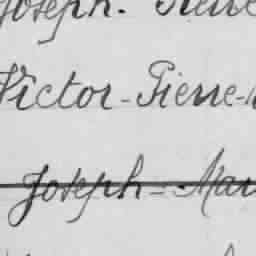 Joseph. Pierre
Victor-Pierre-
Joseph-Mar